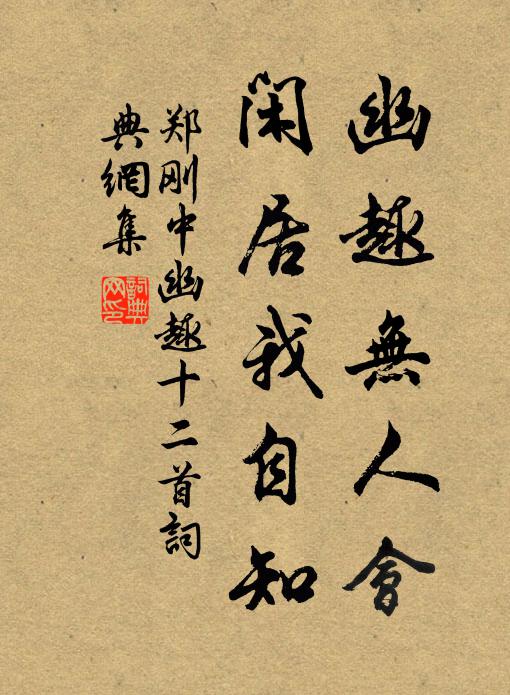 幽趣無人會
閑居我自知
郑刚中幽趣十二首詞
典網集
詞典網印